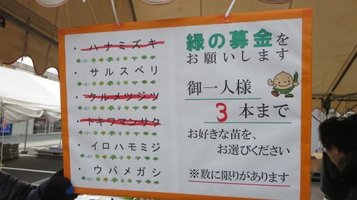 ・ハナミズキ
・サルスベリ
・クルメツツジ
・トキワマンサク
・イロハモミジ
・ウバメガシ
緑の募金を
お願いします
御一人様
3本まで
お好きな苗を、
お選びください
※数に限りがあります